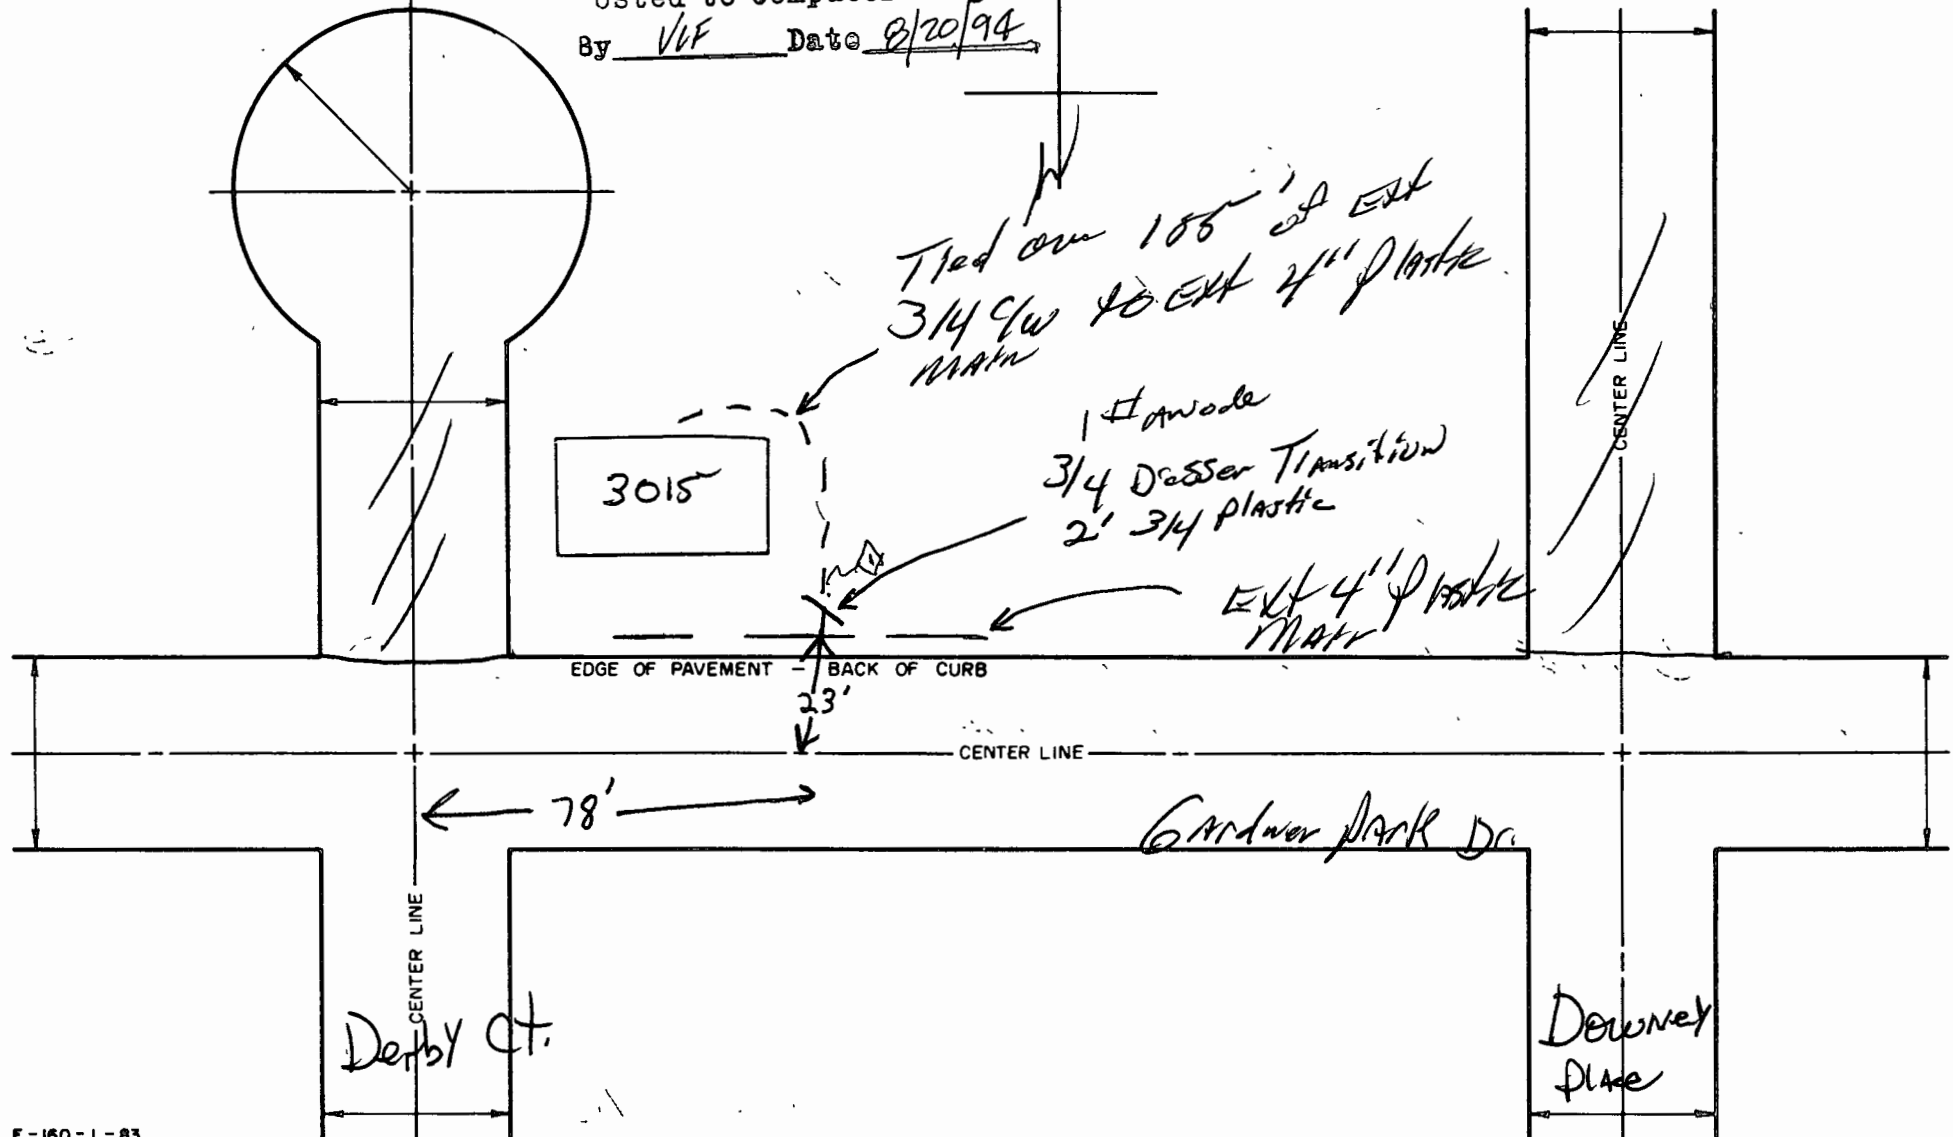 By VLF Date 8/20/94
N
Tied over 185' of Ext
3/4 C/W to Ext 4" Plastic
MAIN
1 # Anode
3/4 Dresser Transition
2' 3/4 Plastic
3015
Ext 4" Plastic
MAIN
EDGE OF PAVEMENT - BACK OF CURB
23'
CENTER LINE
CENTER LINE
78'
Gardner PARK Dr.
CENTER LINE
Derby Ct.
Downey
Place
F-160-1-83